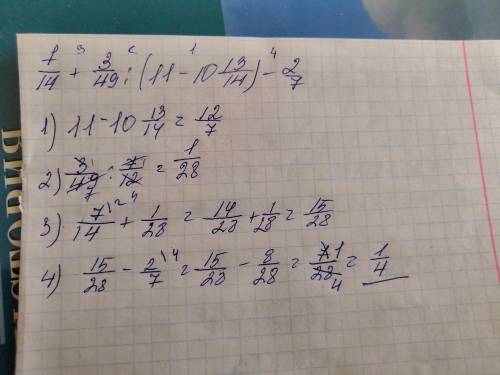 3 2 1 4
7/14 + 3/49 : (11 - 10 13/14) - 2/7
1) 11 - 10 13/14 = 12/7
2) 3/49 : 7/12 = 1/28
3) 7/14 + 1/28 = 14/28 + 1/28 = 15/28
4) 15/28 - 2/7 = 15/28 - 8/28 = 7/28 = 1/4